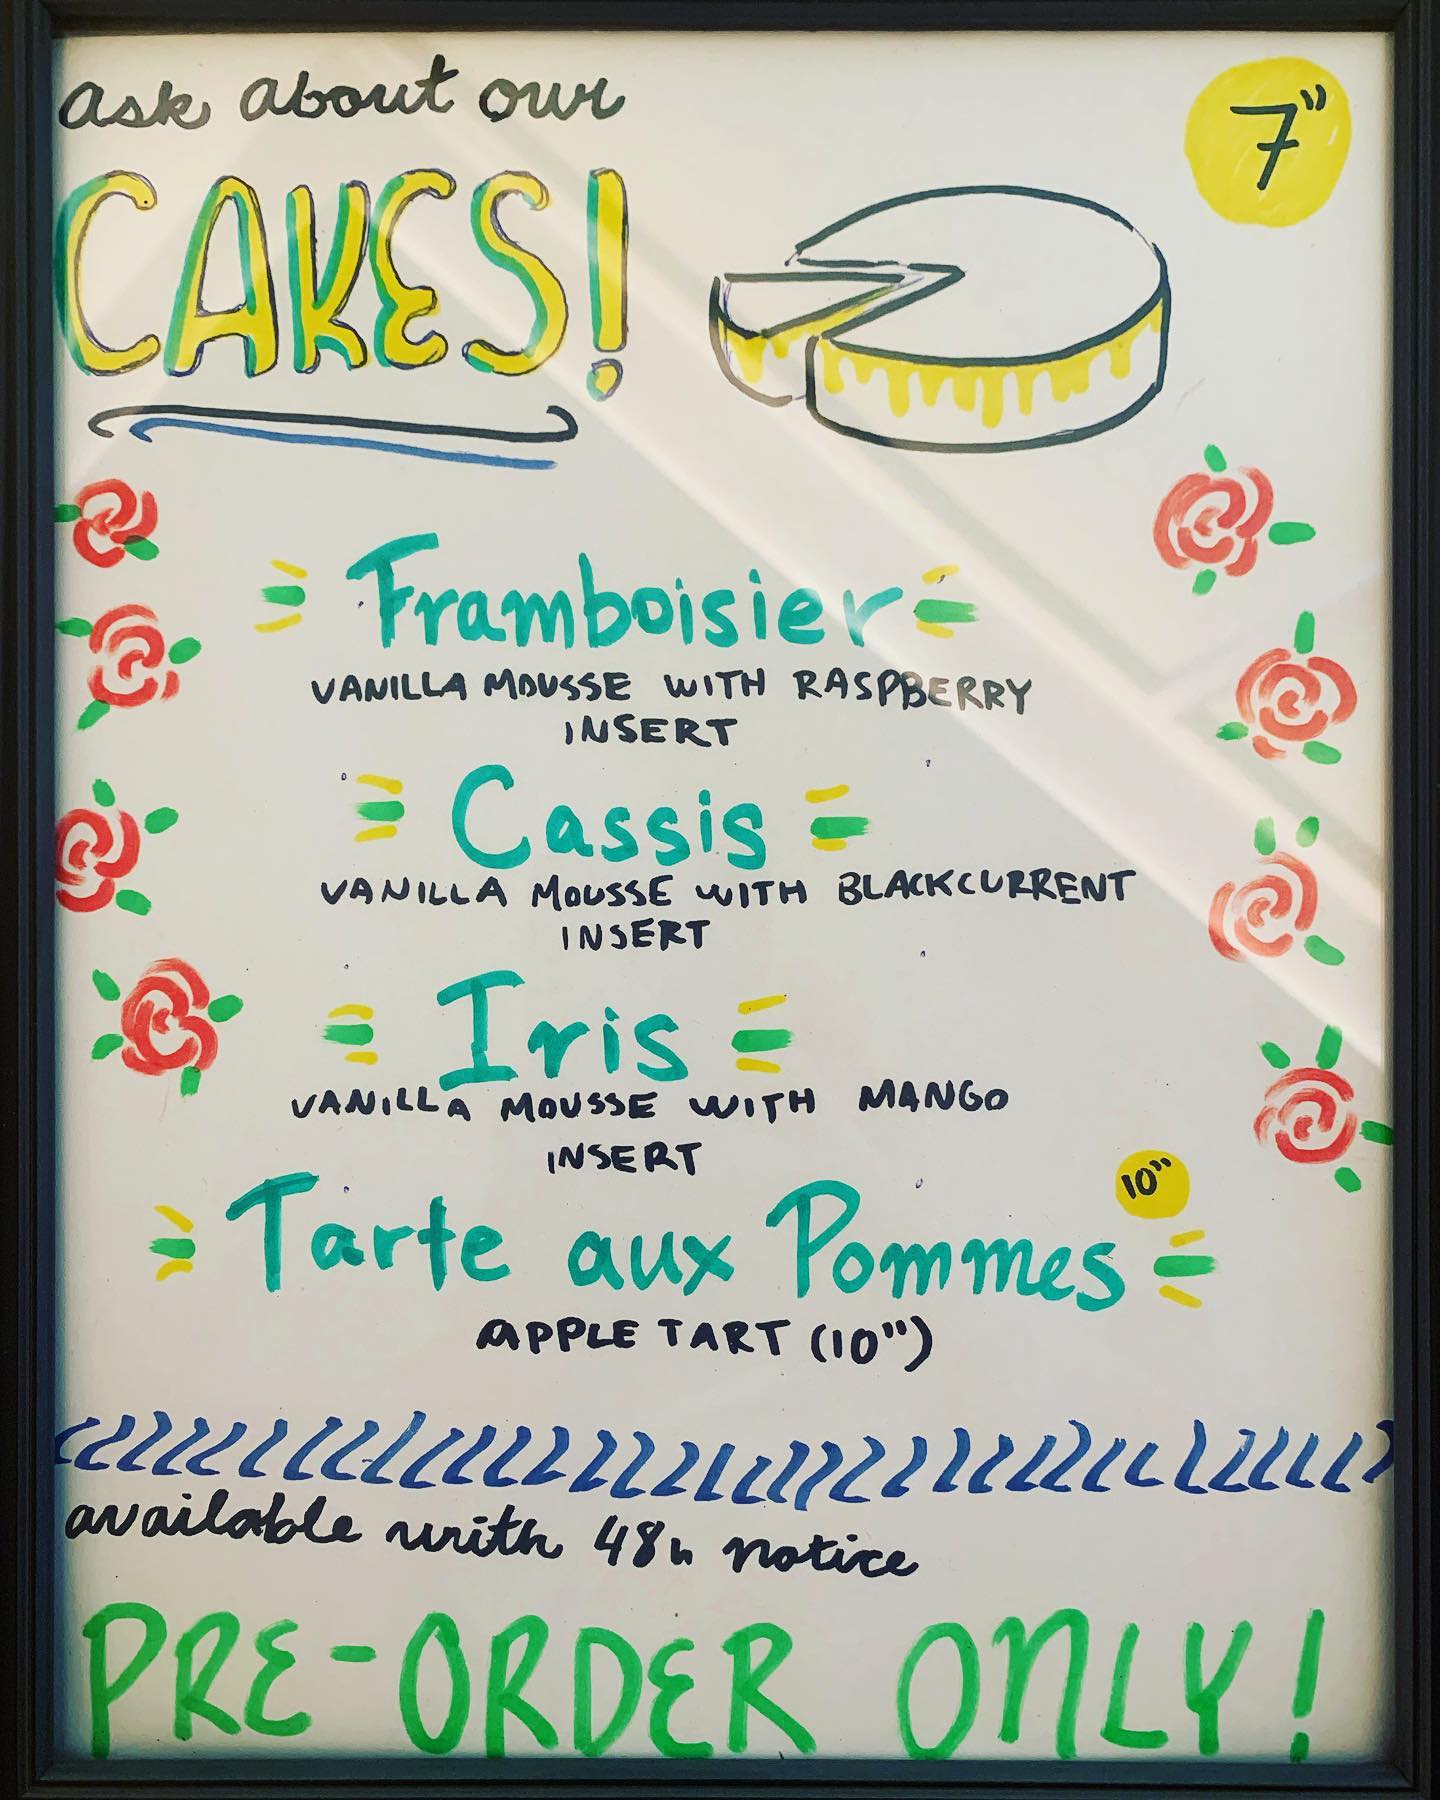 ask about our
7"
CAKES!
Framboisier
VANILLA MOUSSE WITH RASPBERRY
INSERT
Cassis
VANILLA MOUSSE WITH BLACKCURRENT
INSERT
Iris
VANILLA MOUSSE WITH MANGO
INSERT
10"
Tarte aux Pommes
APPLE TART (10")
available with 48h notice
PRE-ORDER ONLY!